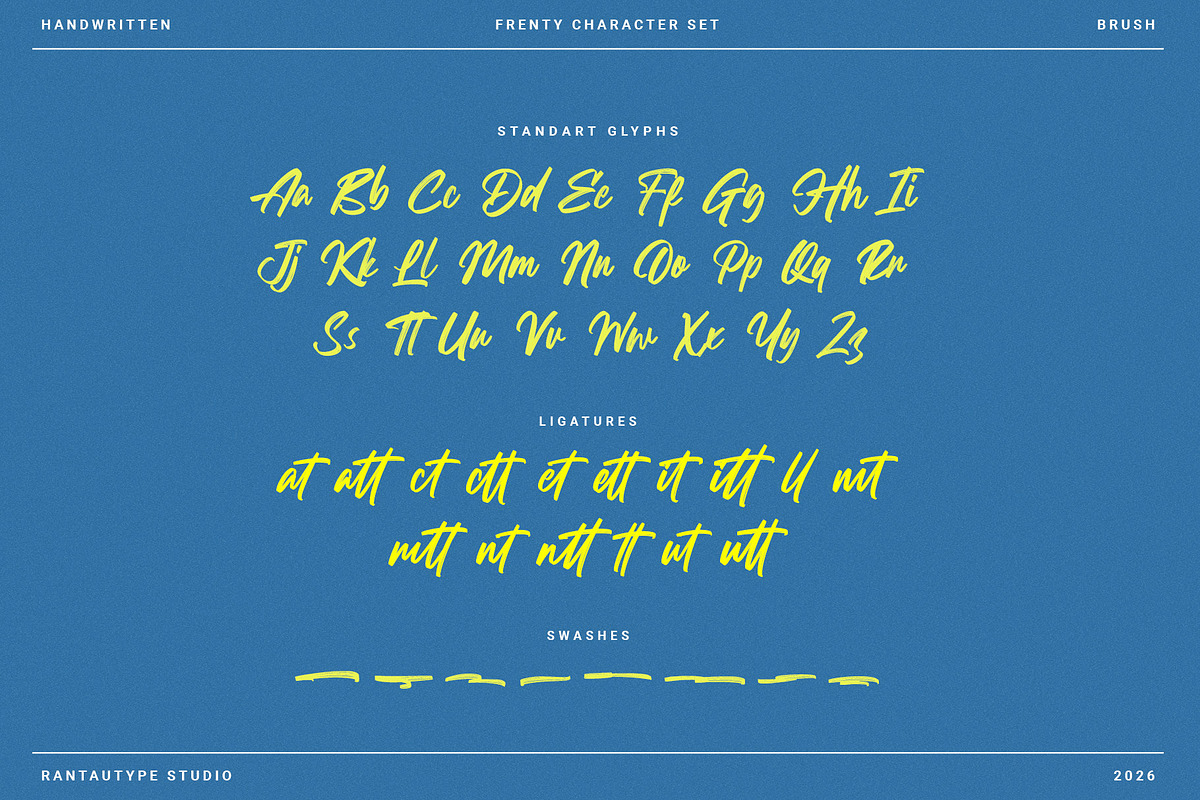 HANDWRITTEN FRENTY CHARACTER SET BRUSH
STANDART GLYPHS
Aa Bb Cc Dd Ee Ff Gg Hh Ii
Jj Kk Ll Mm Nn Oo Pp Qq Rr
Ss Tt Uu Vv Ww Xx Yy Zz
LIGATURES
at att ct ctt et ett it itt ll mt
mtt nt ntt tt ut utt
SWASHES
RANTAUTYPE STUDIO 2026